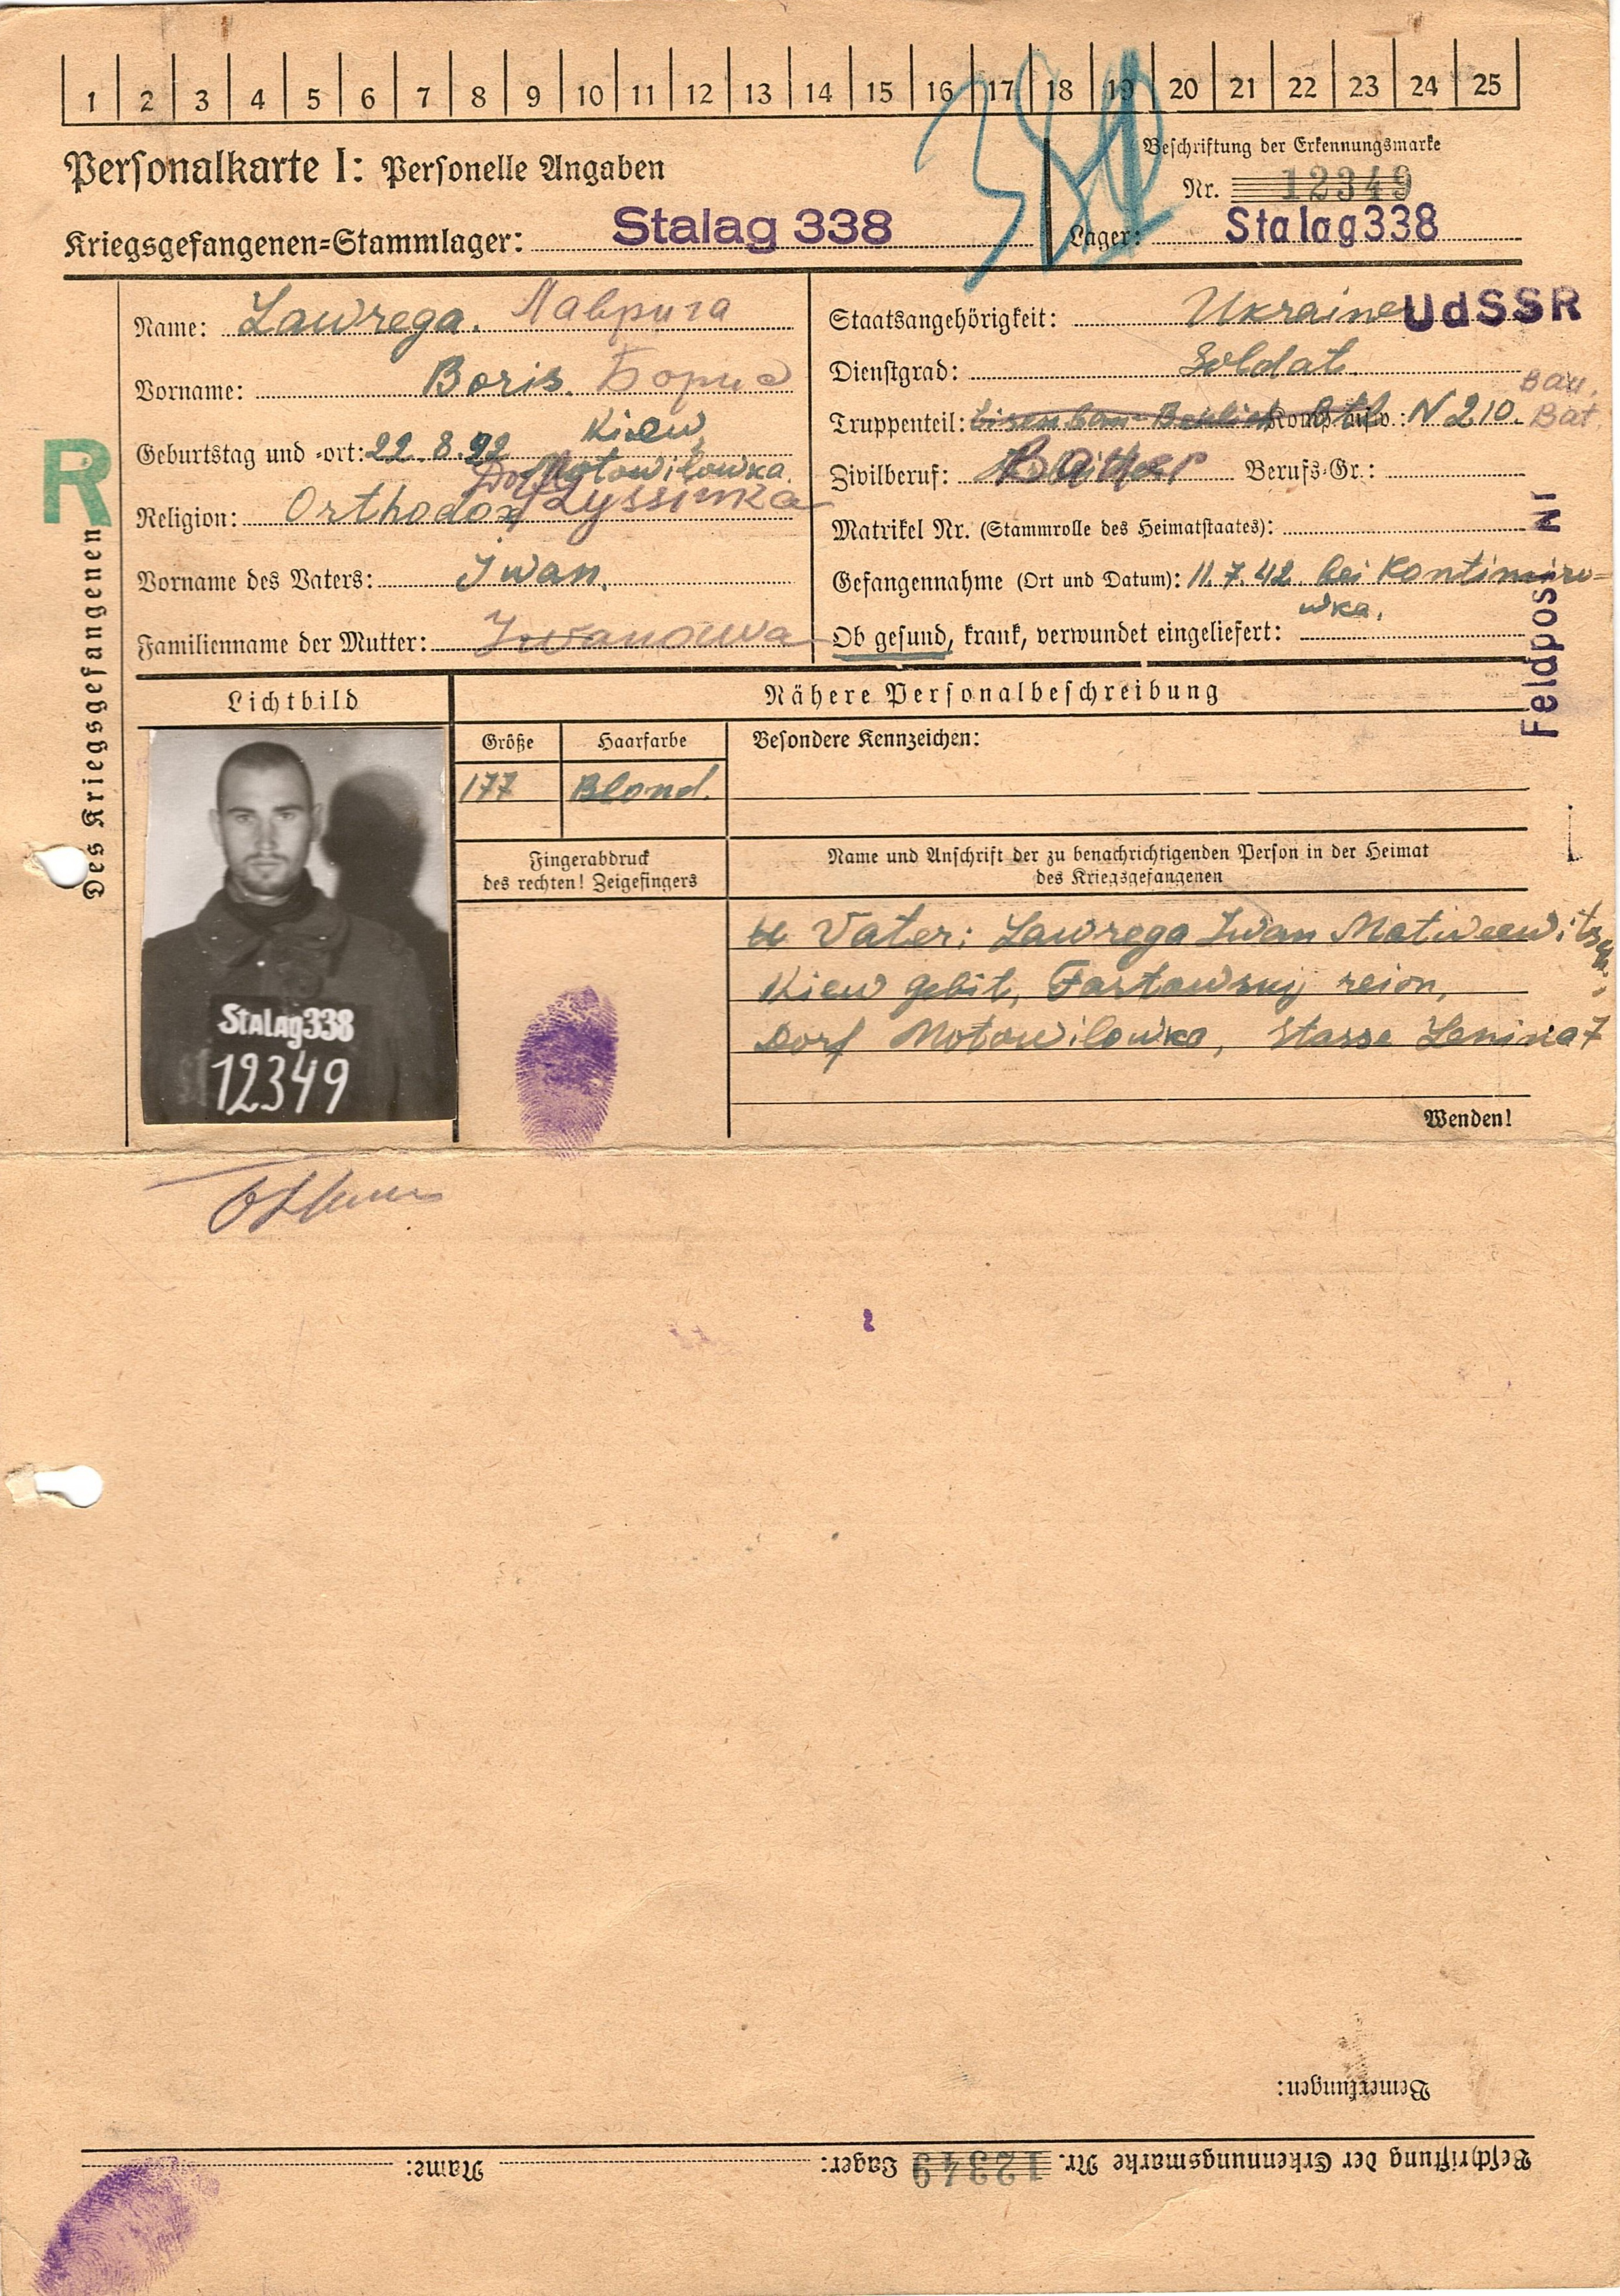 1 2 3 4 5 6 7 8 9 10 11 12 13 14 15 16 17 18 19 20 21 22 23 24 25
Personalkarte I: Personelle Angaben
Beschriftung der Erkennungsmarke
Nr. 12349
Kriegsgefangenen-Stammlager: Stalag 338
Lager: Stalag 338
Des Kriegsgefangenen
R
Name: Lawrega. Лаврига
Vorname: Boris. Борис
Geburtstag und -ort: 22.8.92 Kiew
Dorf Motowilowka.
Lyssinka
Religion: Orthodox
Vorname des Vaters: Iwan.
Familienname der Mutter: Iwanowa
Staatsangehörigkeit: Ukrainer UdSSR
Dienstgrad: Soldat.
Truppenteil: Komp. usw.: N 210. Bau. Bat.
Zivilberuf: Bauer Berufs-Gr.:
Matrikel Nr. (Stammrolle des Heimatstaates):
Gefangennahme (Ort und Datum): 11.7.42 bei Kontimiro=
wka.
Ob gesund, krank, verwundet eingeliefert:
Feldpost Nr
Lichtbild
Nähere Personalbeschreibung
Größe
Haarfarbe
Besondere Kennzeichen:
177
Blond.
Fingerabdruck
des rechten! Zeigefingers
Name und Anschrift der zu benachrichtigenden Person in der Heimat
des Kriegsgefangenen
Vater: Lawrega Iwan Matweewitsch
Kiew gebit, Fastowskij reion,
Dorf Motowilowka, Stasse Lenina 7
Stalag 338
12349
Wenden!
Bemerkungen:
Beschriftung der Erkennungsmarke Nr. 12349 Lager: Name: